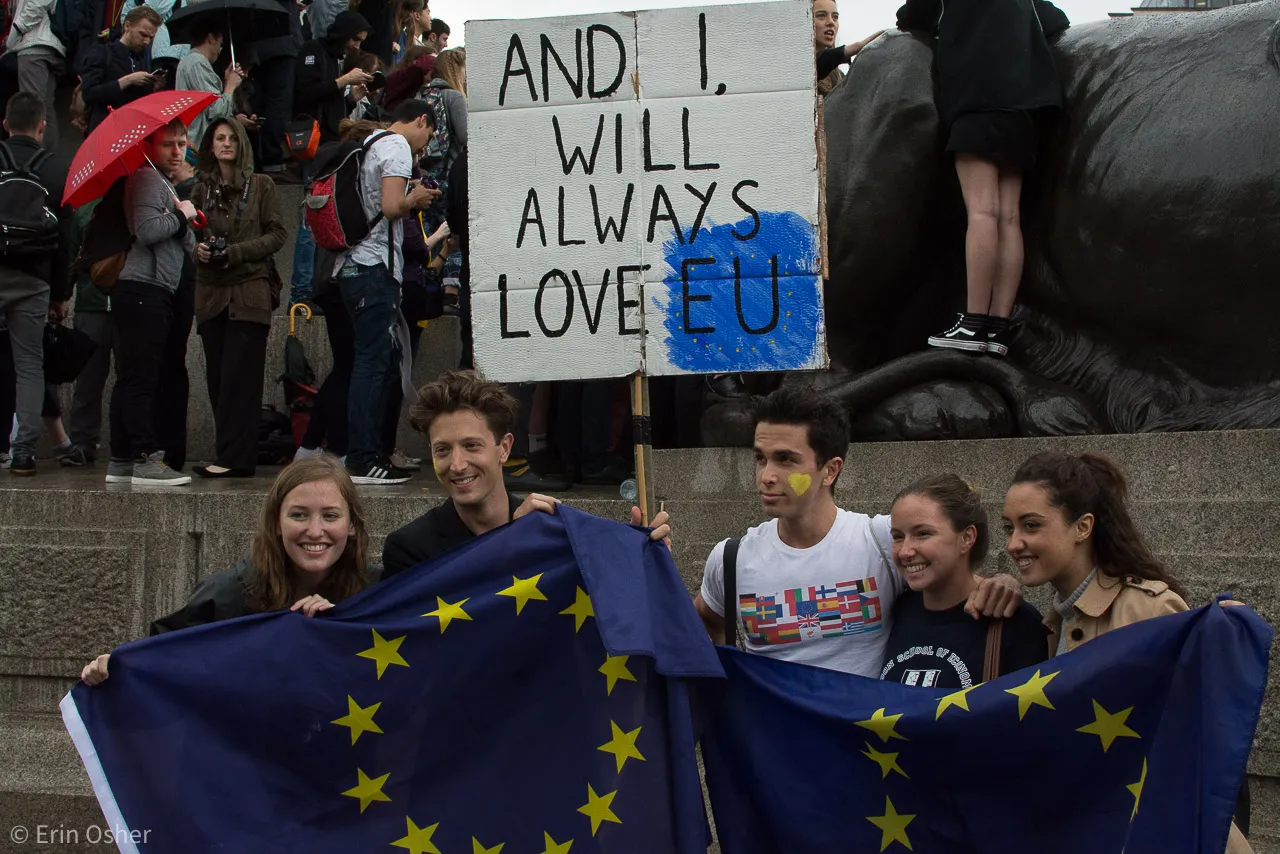 AND I,
WILL
ALWAYS
LOVE EU
SCHOOL OF ECONOM
© Erin Osher